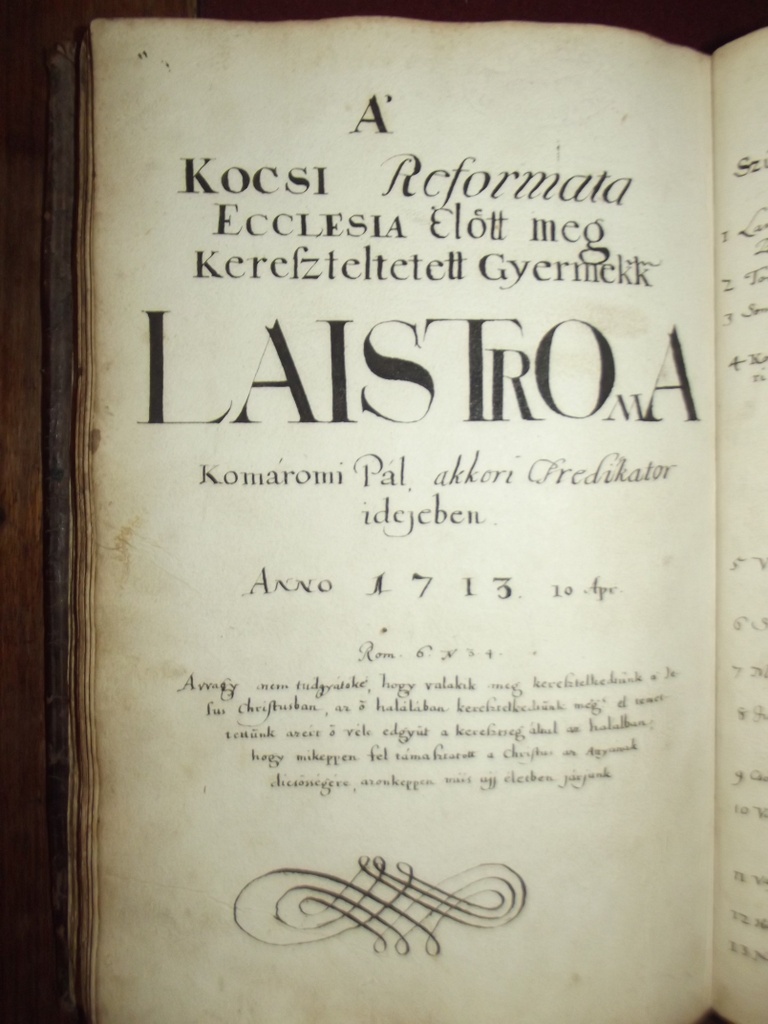 A'
Kocsi Reformata
Ecclesia Előtt meg
Kereſzteltetett Gyermekk
LAISTROMA
Komáromi Pál, akkori Predikator
idejeben.
Anno 1713. 10 Apr.
Rom. 6. V 3 4.
Avvagy nem tudgyátoké, hogy valakik meg kereſztelkedtünk a Je
ſus Chriſtusban, az ő halálában kereſztelkedtünk meg? el temet
tettünk azért ő véle edgyüt a kereſztseg által az halálban;
hogy mikeppen fel támaſztatott a Chriſtus az Atyának
dicsösségére, azonkeppen miis ujj életben járjunk
1
2
3
4
5
6
7
8
9
10
11
12
13